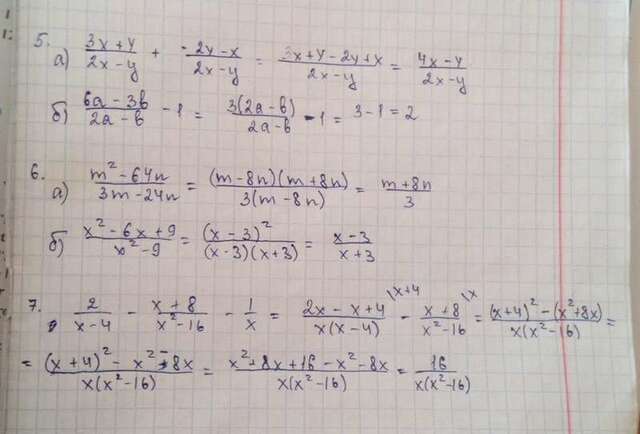 5. a) (3x+y)/(2x-y) + (-2y-x)/(2x-y) = (3x+y-2y+x)/(2x-y) = (4x-y)/(2x-y)
б) (6a-3b)/(2a-b) - 1 = 3(2a-b)/(2a-b) - 1 = 3-1 = 2
6. a) (m²-64n)/(3m-24n) = (m-8n)(m+8n)/3(m-8n) = (m+8n)/3
б) (x²-6x+9)/(x²-9) = (x-3)²/(x-3)(x+3) = (x-3)/(x+3)
7. 2/(x-4) - (x+8)/(x²-16) - 1/x = (2x-x+4)/x(x-4) \x+4 - (x+8)/(x²-16) \x = ((x+4)²-(x²+8x))/x(x²-16) =
= ((x+4)²-x²-8x)/x(x²-16) = (x²+8x+16-x²-8x)/x(x²-16) = 16/x(x²-16)